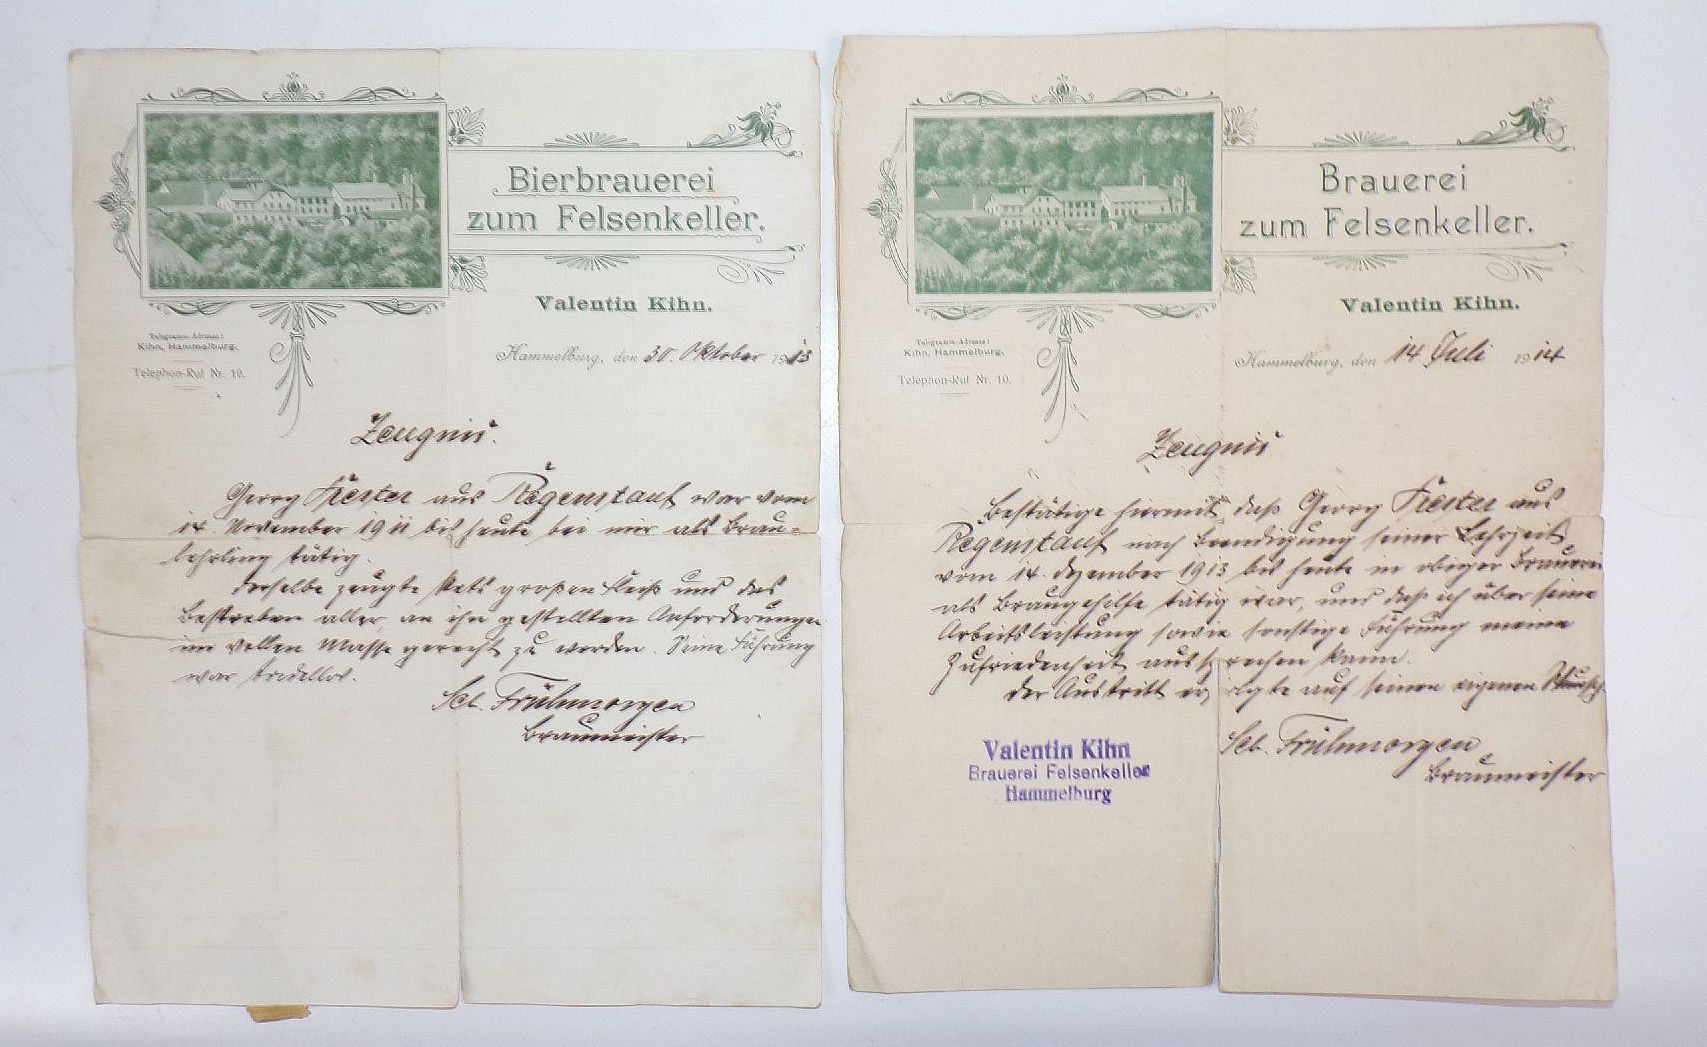 Bierbrauerei
zum Felsenkeller.
Valentin Kihn.
Telegramm-Adresse:
Kihn, Hammelburg.
Telephon-Ruf Nr. 10.
Hammelburg, den 30. Oktober 1913
Zeugnis.
Georg Kester aus Regenstauf war vom
14. November 1911 bis heute bei mir als Brau-
lehrling tätig.
Derselbe zeugte stets großen Fleiß und das
Bestreben aller an ihn gestellten Anforderungen
im vollen Masse gerecht zu werden. Seine Führung
war tadellos.
Seb. Frühmorgen
Braumeister
Brauerei
zum Felsenkeller.
Valentin Kihn.
Telegramm-Adresse:
Kihn, Hammelburg.
Telephon-Ruf Nr. 10.
Hammelburg, den 14 Juli 1914
Zeugnis
Bestätige hiermit, daß Georg Kester aus
Regenstauf nach Beendigung seiner Lehrzeit
vom 14. Dezember 1913 bis heute in obiger Brauerei
als Braugehilfe tätig war, und daß ich über seine
Arbeitsleistung sowie sonstige Führung meine
Zufriedenheit aussprechen kann.
Der Austritt erfolgte auf seinen eigenen Wunsch.
Seb. Frühmorgen
Braumeister
Valentin Kihn
Brauerei Felsenkeller
Hammelburg